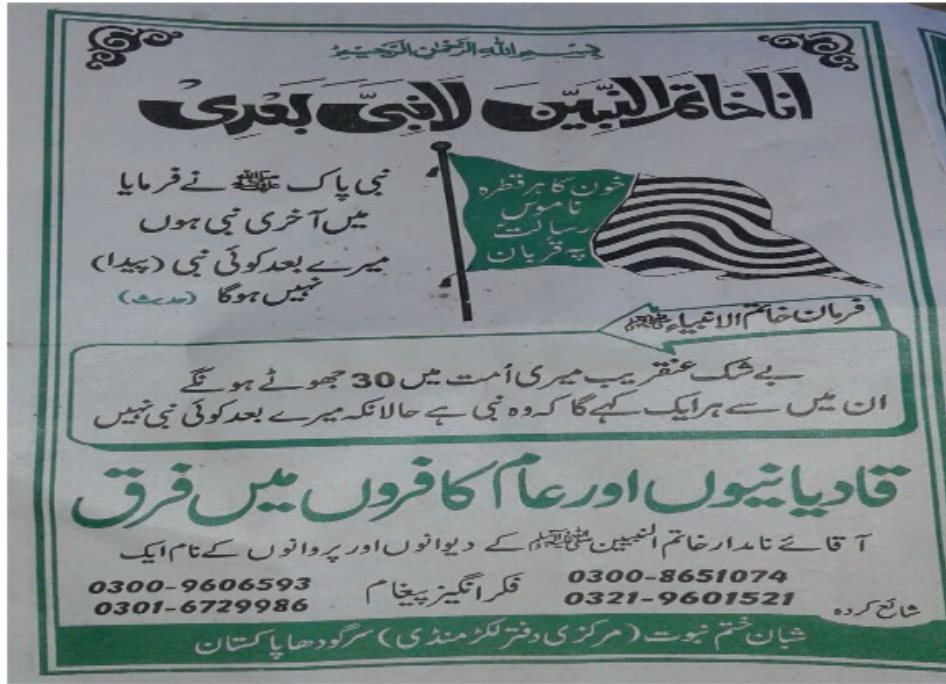 بسم اللہ الرحمٰن الرحیم
انا خاتم النبیین لا نبی بعدی
نبی پاک ﷺ نے فرمایا
میں آخری نبی ہوں
میرے بعد کوئی نبی (پیدا)
نہیں ہوگا (حدیث)
خون کا ہر قطرہ
ناموس
رسالت
پہ قربان
فرمان خاتم الانبیاء ﷺ
بے شک عنقریب میری اُمت میں 30 جھوٹے ہونگے
ان میں سے ہر ایک کہے گا کہ وہ نبی ہے حالانکہ میرے بعد کوئی نبی نہیں
قادیانیوں اور عام کافروں میں فرق
آقائے نامدار خاتم النبیین ﷺ کے دیوانوں اور پروانوں کے نام ایک
فکر انگیز پیغام
0300-8651074
0321-9601521
0300-9606593
0301-6729986
شائع کردہ
شبان ختم نبوت (مرکزی دفتر لکڑ منڈی) سرگودھا پاکستان